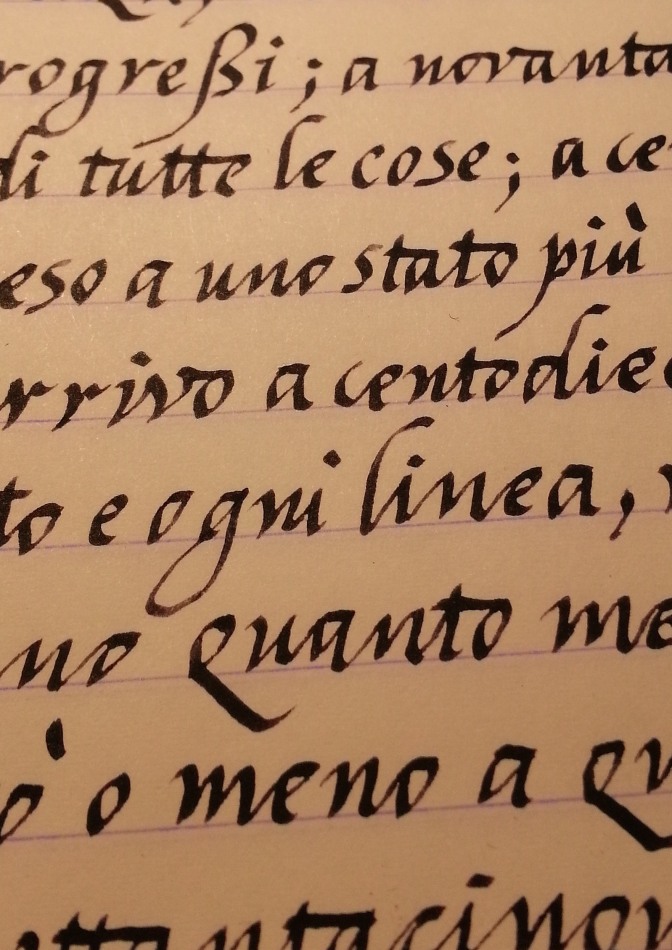 rogreßi; a novanta
di tutte le cose; a ce
eso a uno stato più
rrivo a centodiec
to e ogni linea,
no Quanto me
o meno a Qu
ttantacinqu